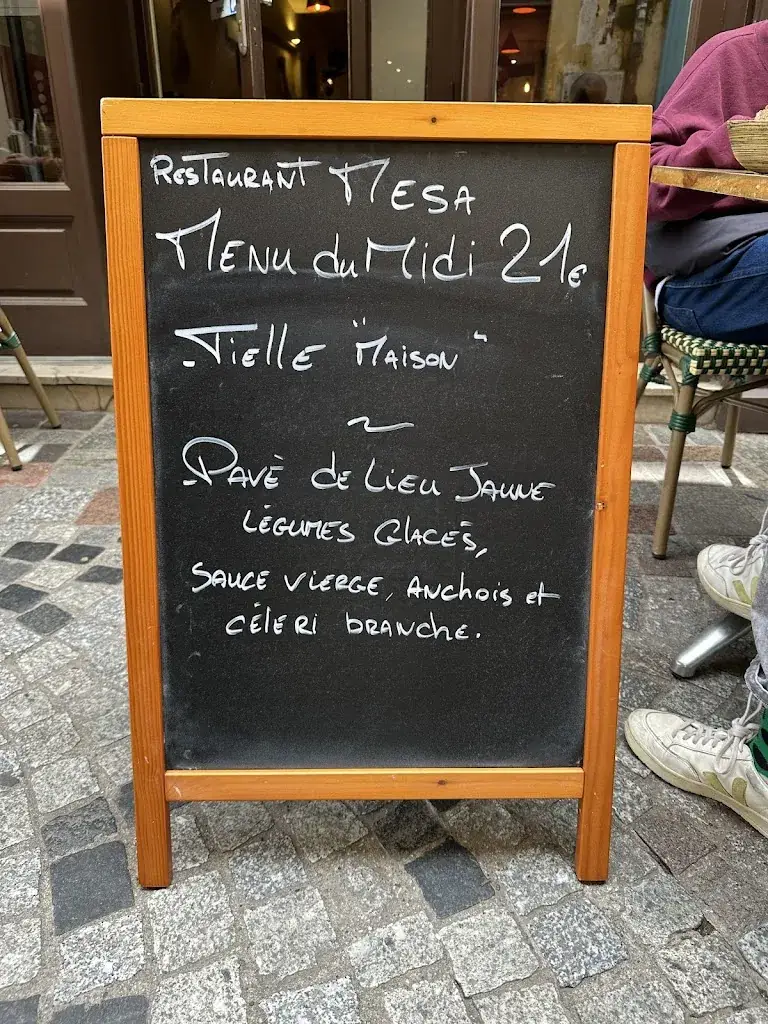 Restaurant Mesa
Menu du Midi 21€
- Tielle "Maison"
~
- Pavé de Lieu Jaune
Légumes Glacés,
Sauce vierge, Anchois et
céleri branche.